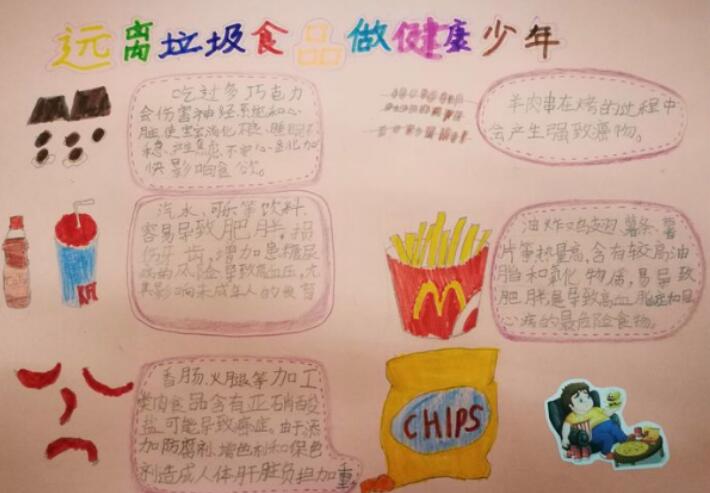 远离垃圾食品做健康少年
吃过多巧克力
会伤害神经系统和心
脏,使宝宝消化不良、睡眠不
稳、焦虑、不安、心
快影响食欲。
羊肉串在烤的过程中
会产生强致癌物。
汽水、可乐等饮料,
容易导致肥胖,损
伤牙齿,增加患糖尿
病的风险导致高血压,尤
其影响未成年人的发育
KFC
油炸鸡翅、薯条、薯
片等热量高,含有较高油
脂和氧化物质,易导致
肥胖,是导致高血脂症和冠
心病的最危险食物。
香肠、火腿等加工
类肉食品含有亚硝酸
盐可能导致癌症。由于添
加防腐剂、增色剂和保色
剂造成人体肝脏负担加重。
CHIPS